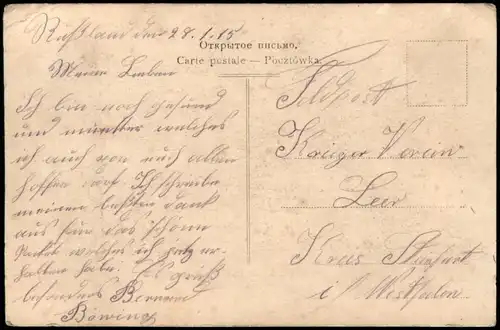 Rußland den 28.1.15
Открытое письмо.
Carte postale — Pocztówka.
Meine Lieben
Ich bin noch gesund
und munter welches
ich auch von euch allen
hoffen darf. Ich schreibe
meinen besten dank
aus für das schöne
Packet welches ich jetz er-
halten habe. Es grüß
besonders Bernard
Böwing
Feldpost
Krieger Verein
Leer
Kreis Steinfurt
i/ Westfalen